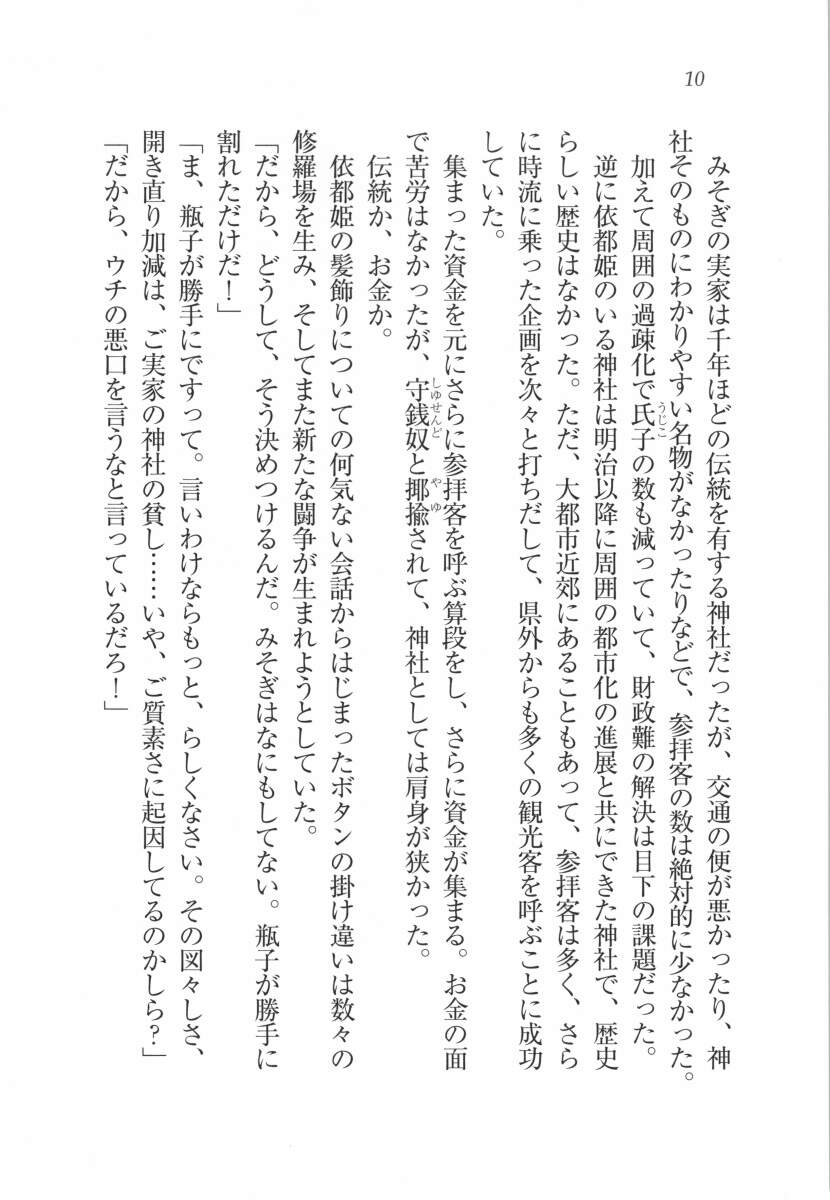 10
みそぎの実家は千年ほどの伝統を有する神社だったが、交通の便が悪かったり、神
社そのものにわかりやすい名物がなかったりなどで、参拝客の数は絶対的に少なかった。
加えて周囲の過疎化で氏子の数も減っていて、財政難の解決は目下の課題だった。
逆に依都姫のいる神社は明治以降に周囲の都市化の進展と共にできた神社で、歴史
らしい歴史はなかった。ただ、大都市近郊にあることもあって、参拝客は多く、さら
に時流に乗った企画を次々と打ちだして、県外からも多くの観光客を呼ぶことに成功
していた。
集まった資金を元にさらに参拝客を呼ぶ算段をし、さらに資金が集まる。お金の面
で苦労はなかったが、守銭奴と揶揄されて、神社としては肩身が狭かった。
伝統か、お金か。
依都姫の髪飾りについての何気ない会話からはじまったボタンの掛け違いは数々の
修羅場を生み、そしてまた新たな闘争が生まれようとしていた。
「だから、どうして、そう決めつけるんだ。みそぎはなにもしてない。瓶子が勝手に
割れただけだ！」
「ま、瓶子が勝手にですって。言いわけならもっと、らしくなさい。その図々しさ、
開き直り加減は、ご実家の神社の貧し……いや、ご質素さに起因してるのかしら？」
「だから、ウチの悪口を言うなと言っているだろ！」